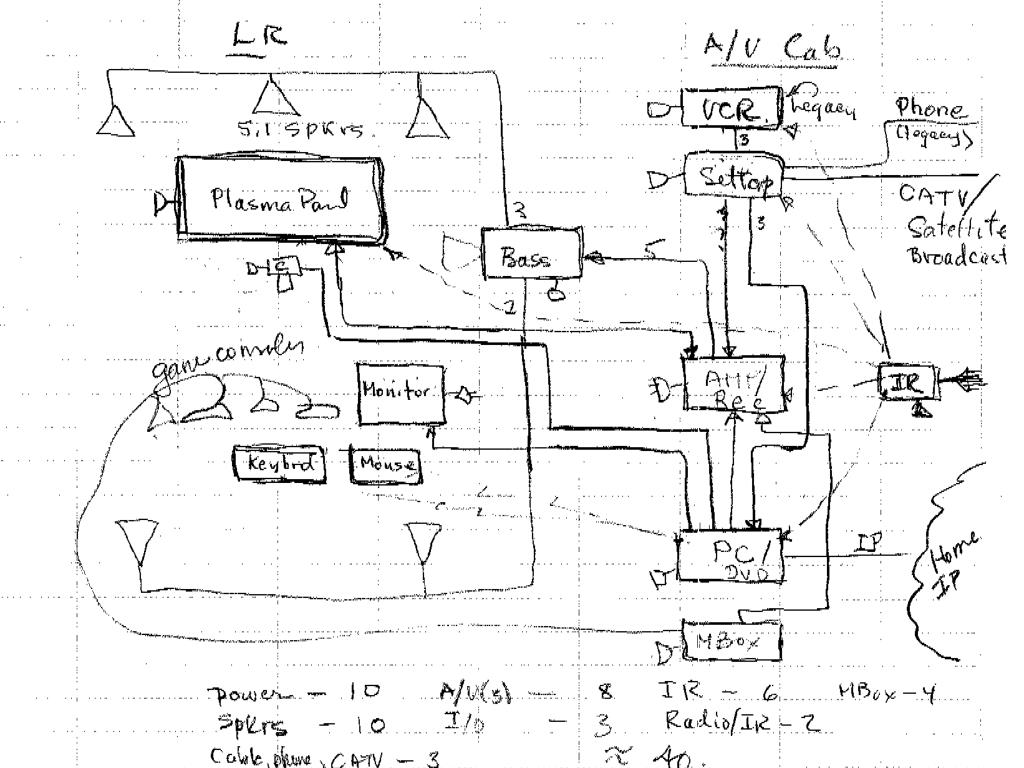 LR
A/V Cab
VCR
Legacy
3
Phone
(legacy)
5.1 Spkrs.
Settop
CATV/
Satellite
Broadcast
Plasma Panl
3
3
Bass
5
C
2
game consoles
Monitor
AMP/
Rec
IR
Keybrd
Mouse
PC/
DVD
IP
Home
IP
MBox
power - 10 A/V(s) - 8 IR - 6 MBox - 4
Spkrs - 10 I/O - 3 Radio/IR - 2
Cable, phone, CATV - 3 ≈ 40.